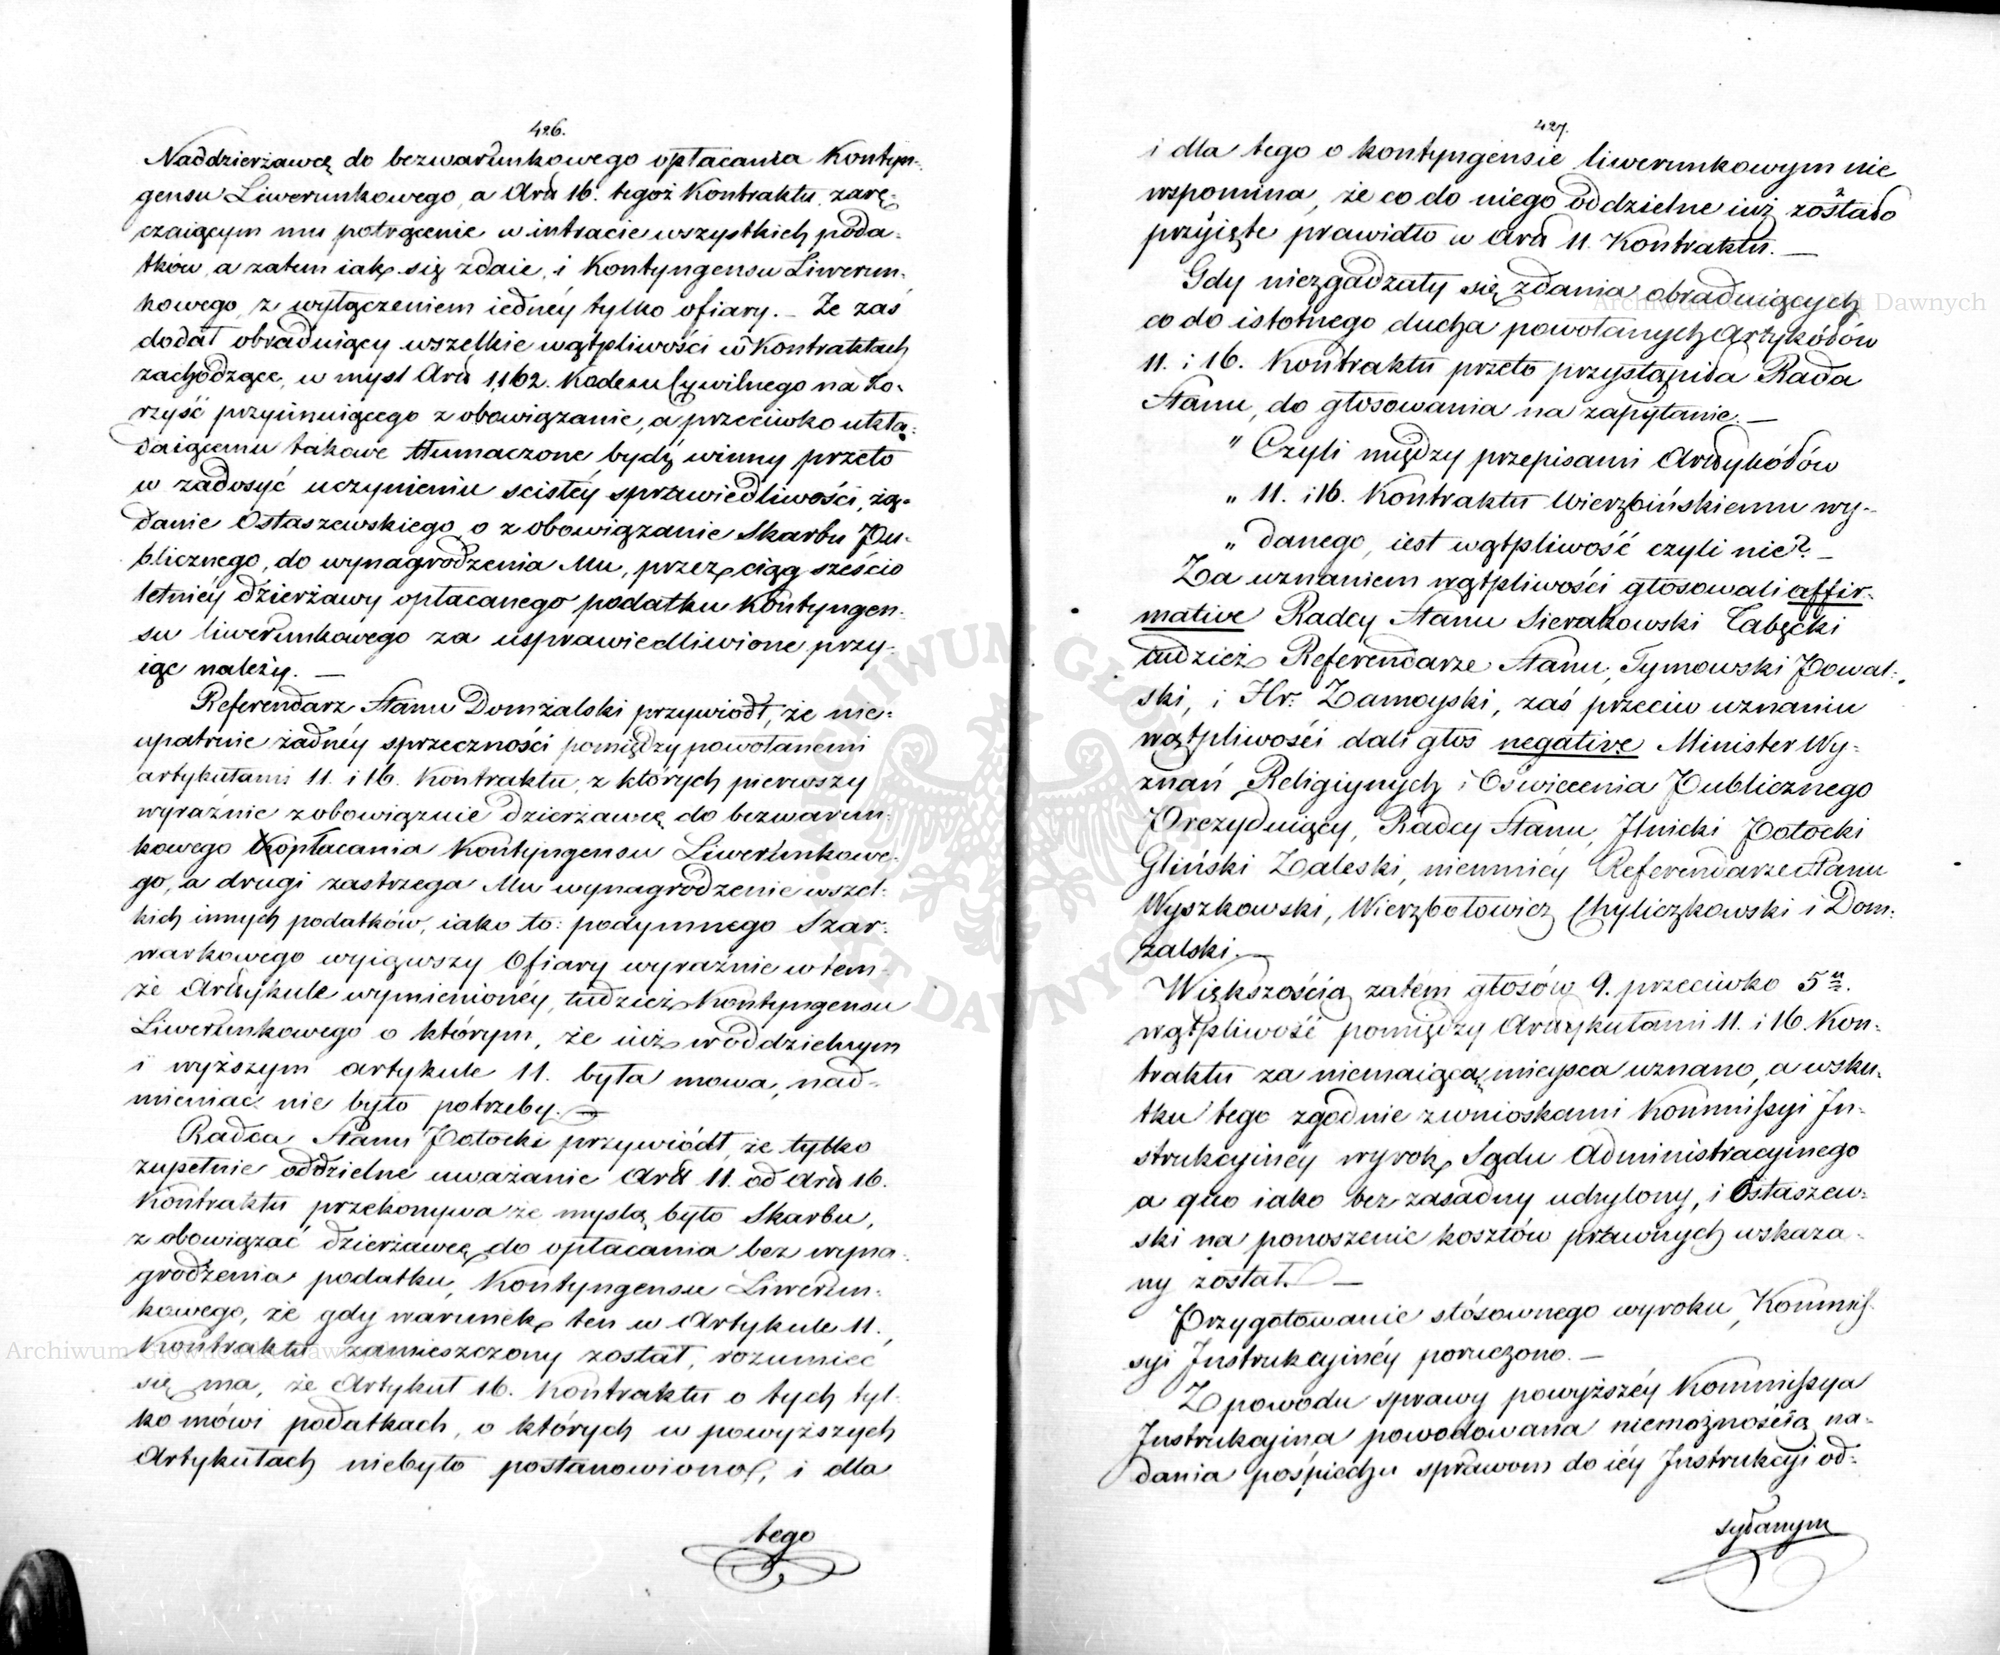 426.
Naddzierżawcę do bezwarunkowego opłacania Kontyn-
gensu Liwerunkowego, a Artł 16. tegoż Kontraktu, zarę-
czaiącym mu potrącenie w intracie wszystkich poda-
tków, a zatem iak się zdaie, i Kontyngensu Liwerun-
kowego, z wyłączeniem iednéy tylko ofiary. – Że zaś
dodał obraduiący wszelkie wątpliwości w Kontraktach
zachodzące, w myśl Artł 1162. Kodexu Cywilnego na ko-
rzyść przyimuiącego zobowiązanie, a przeciwko ukła-
daiącemu takowe tłumaczone bydź winny przeto
w zadosyć uczynieniu scisłéy sprawiedliwości, żą-
danie Ostaszewskiego, o zobowiązanie Skarbu Pu-
blicznego, do wynagrodzenia Mu, przez ciąg sześcio
letniéy dzierżawy opłacanego podatku Kontyngen-
su liwerunkowego za usprawiedliwione przy-
iąc należy. –
Referendarz Stanu Domżalski przywiódł, że nie-
upatruie żadnéy sprzeczności pomiędzy powołanemi
artykułami 11. i 16. Kontraktu, z których pierwszy
wyraźnie zobowiązuie Dzierżawcę do bezwarun-
kowego opłacania Kontyngensu Liwerunkowe-
go, a drugi zastrzega Mu wynagrodzenie wszel-
kich innych podatków, iako to: podymnego Szar-
warkowego wyiąwszy Ofiary wyraźnie w tem-
że Artykule wymienionéy, tudzież Kontyngensu
Liwerunkowego o którym, że iuż w oddzielnym
i wyższym artykule 11. była mowa, nad-
mieniać nie było potrzeby. –
Radca Stanu Potocki przywiódł, że tylko
zupełnie oddzielne uważanie Artł 11. od Artł 16.
Kontraktu przekonywa że myślą było Skarbu,
zobowiązać dzierżawcę do opłacania bez wyna-
grodzenia podatku, Kontyngensu Liwerun-
kowego, że gdy warunek ten w Artykule 11.
Kontraktu zamieszczony został, rozumieć
się ma, że Artykuł 16. Kontraktu o tych tyl-
ko mówi podatkach, o których w powyższych
Artykułach niebyło postanowiono, i dla
tego
427.
i dla tego o kontyngensie liwerunkowym nie
wspomina, że co do niego oddzielne iuż zostało
przyięte prawidło w Artł 11. Kontraktu. –
Gdy niezgadzały się zdania obraduiących
co do istotnego ducha powołanych Artykółów
11. i 16. Kontraktu przeto przystąpiła Rada
Stanu, do głosowania na zapytanie. –
" Czyli między przepisami Artykółów
" 11. i 16. Kontraktu Wierzbińskiemu wy-
" danego, iest wątpliwość czyli nie? –
Za uznaniem wątpliwości głosowali affir-
mative Radcy Stanu Sierakowski Łabęcki
tudzież Referendarze Stanu, Tymowski Kowal-
ski, i Hr: Zamoyski, zaś przeciw uznaniu
wątpliwości dali głos negative Minister Wy-
znań Religiynych i Oświecenia Publicznego
Prezyduiący, Radcy Stanu, Ilnicki Potocki
Gliński Zaleski, niemniéy Referendarze Stanu
Wyszkowski, Wierzbołowicz Chyliczkowski i Dom-
żalski. –
Większością zatem głosów 9. przeciwko 5u
wątpliwość pomiędzy Artykułami 11. i 16. Kon-
traktu za niemaiącą mieysca uznano, a wsku-
tku tego zgodnie z wnioskami Kommissyi In-
strukcyinéy wyrok Sądu Administracyinego
a quo iako bezzasadny uchylony, i Ostaszew-
ski na ponoszenie kosztów prawnych wskaza-
ny został. –
Przygotowanie stósownego wyroku, Kommis-
syi Instrukcyinéy poruczono. –
Z powodu sprawy powyższéy Kommissya
Instrukcyina powodowana niemożnością na-
dania pośpiechu sprawom do iéy Instrukcyi od-
sydanym
Archiwum Główne Akt Dawnych